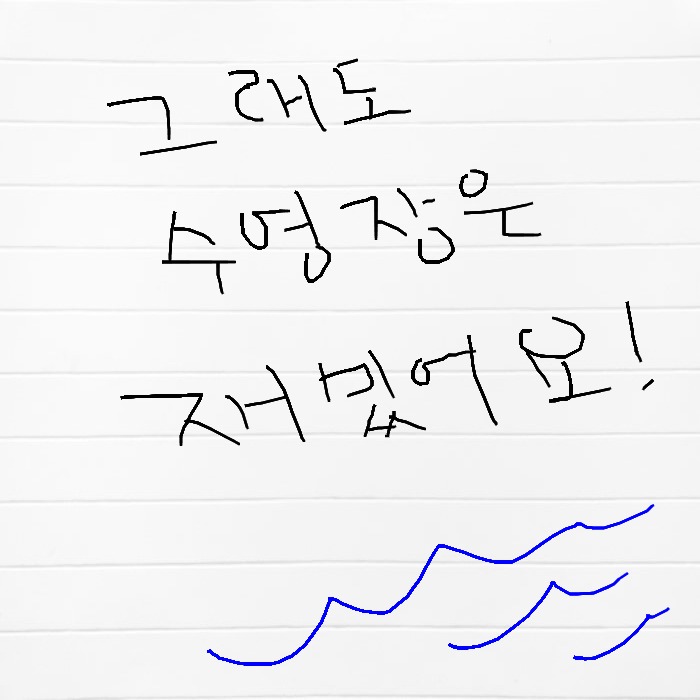 그래도
수영장은
재밌어요!